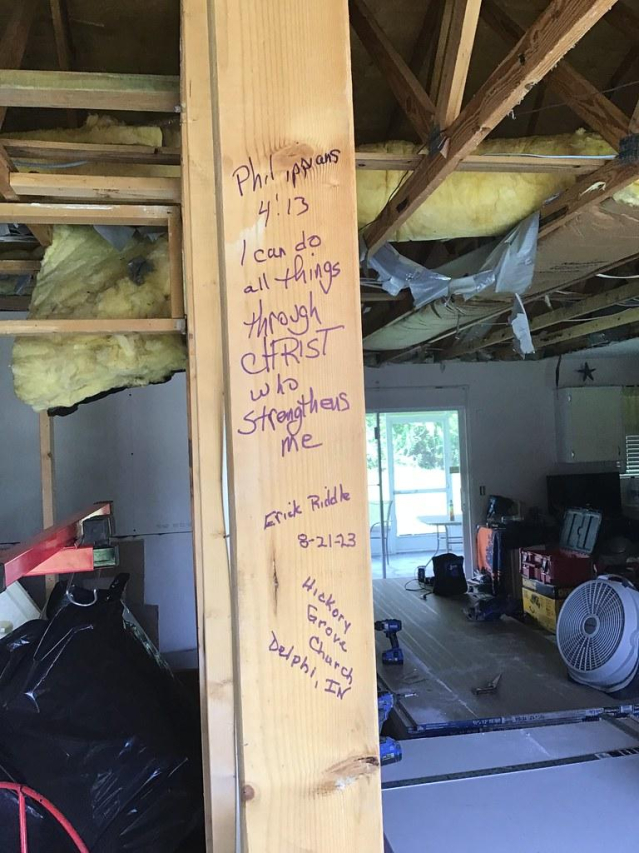 Philippians
4:13
I can do
all things
through
CHRIST
who
strengthens
me
Erick Riddle
8-21-23
Hickory
Grove
Church
Delphi, IN